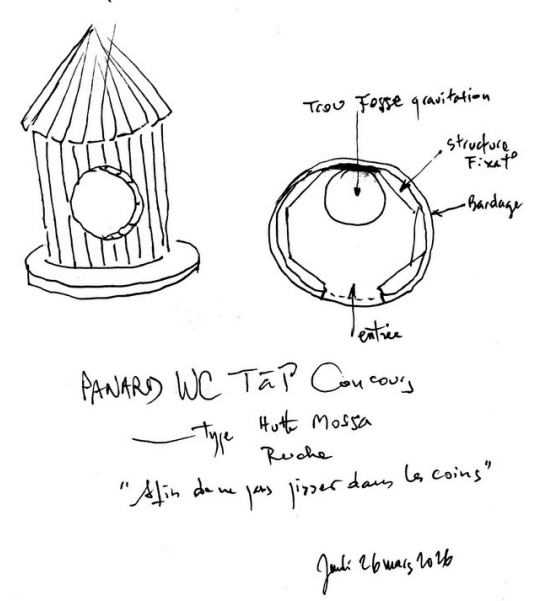 Trou Fosse gravitation
Structure
Fixat°
Bardage
entrée
PANARD WC TAP Concours
Type Hutte Mossa
Ruche
"Afin de ne pas pisser dans les coins"
Jeudi 26 mars 2026